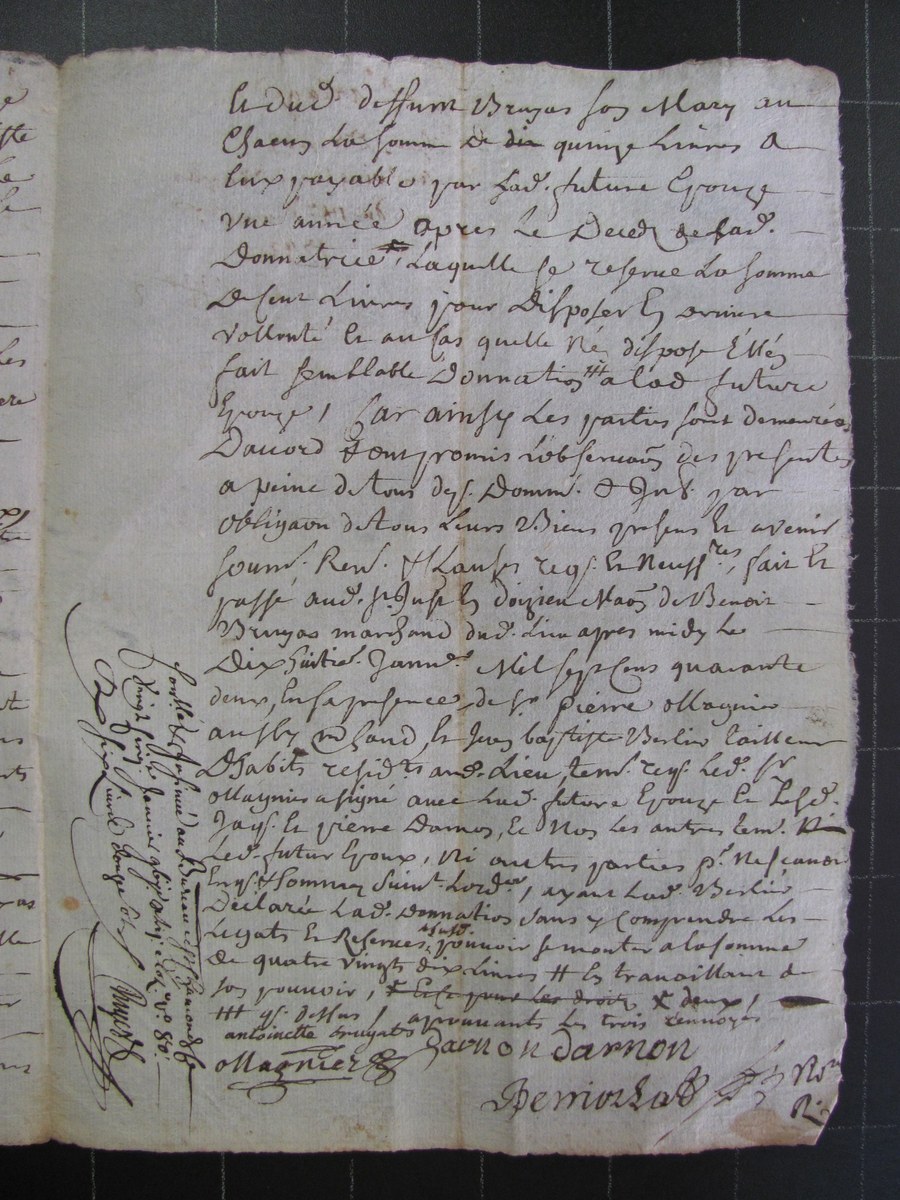 et dud. deffunt Bruyas son Mary au
Chacun La somme de quinze Livres a
Eux payable par Lad. future Epouze
une année apres Le Deced de Lad.
Donnatrice, Laquelle se reserve La somme
De cent Livres pour Disposer En derniere
vollonté Et au Cas quelle N'en dispose Elle En
fait semblable Donnation a lad future
Epouze, Car ainsy Les parties sont demeurées
Daccord & ont promis L'observaon des presentes
a peine de tous dep. Domm. & Int. par
obligaon de tous Leurs Biens presens Et avenir
soum. Ren. & Clauses req. Et Necess.res, fait Et
passé aud. St Just En Doizieu Maon de Benoit
Bruyas marchand dud. Lieu apres midy Le
Dix huitie. Janv. Mil sept Cens quarante
deux, En la presence de Sr pierre Magnier
aussy mchand, Et Jean baptiste Berlier tailleur
D'habits resid.ts aud. Lieu, tem. req. Led. Sr
Magnier a signé avec Lad. future Epouze Et Lesd.
Et pierre Darnon, Et Non Les autres tem. Ni
Led. futur Epoux, Ni autres parties pr Ne scavoir
Enq. & Sommez Suivt Lord.ce, ayant Lad. Berlier
Declarée Lad. Donnation sans y Comprendre Les
Legats Et Reserves pouvoir se monter a la somme
de quatre vingts dix Livres # En travaillant de
son pouvoir, Les droits deux,
dessus, aprouvants Les trois renvoyés
antoinette bruyas Darnon darnon
Magnier
Perriolat Nore
R.
Controllé & Insinué au Bureau de St Chamond Le
vingt Janvier
Reçu six Livres douze sols